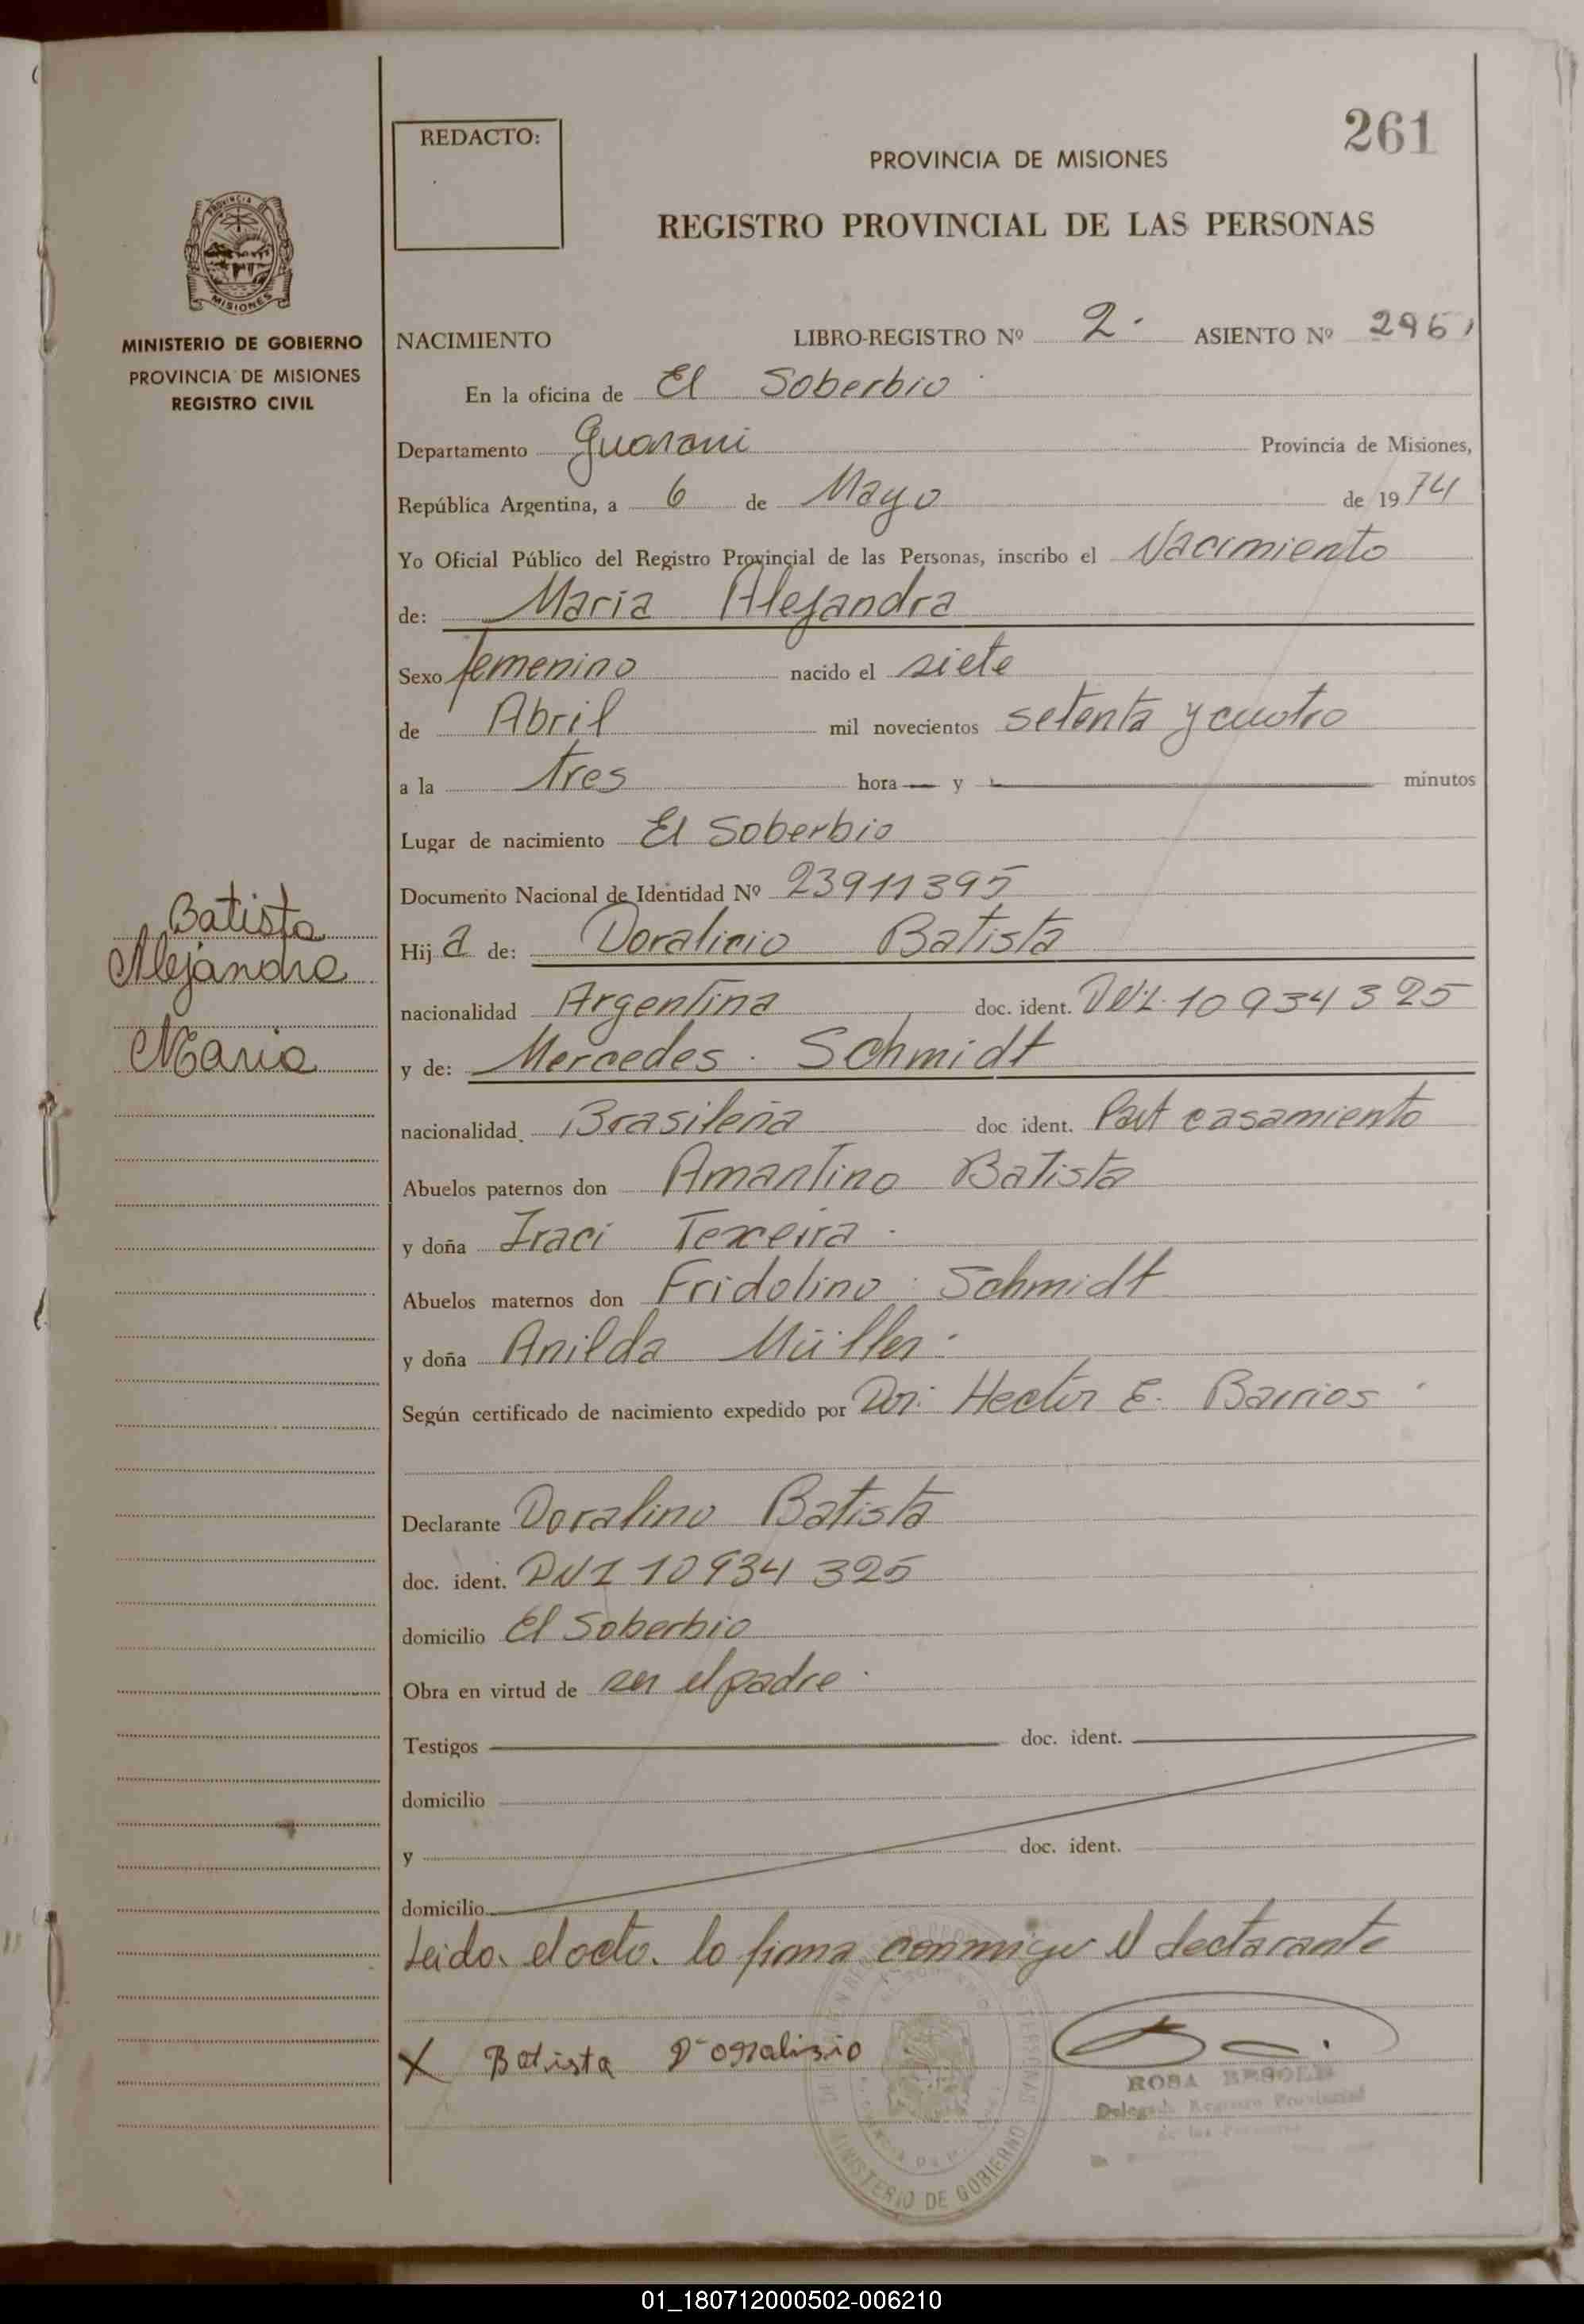 261
REDACTO:
PROVINCIA DE MISIONES
REGISTRO PROVINCIAL DE LAS PERSONAS
PROVINCIA DE
MISIONES
MINISTERIO DE GOBIERNO
PROVINCIA DE MISIONES
REGISTRO CIVIL
NACIMIENTO LIBRO-REGISTRO Nº 2. ASIENTO Nº 296
En la oficina de El Soberbio
Departamento Guarani Provincia de Misiones,
República Argentina, a 6 de Mayo de 1974
Yo Oficial Público del Registro Provincial de las Personas, inscribo el Nacimiento
de: Maria Alejandra
Sexo femenino nacido el siete
de Abril mil novecientos setenta y cuatro
a la tres hora — y — minutos
Lugar de nacimiento El Soberbio
Documento Nacional de Identidad Nº 23911395
Batista
Alejandra
Maria
Hija de: Doralicio Batista
nacionalidad Argentina doc. ident. DNI. 10934325
y de: Mercedes Schmidt
nacionalidad Brasileña doc ident. Part casamiento
Abuelos paternos don Amantino Batista
y doña Iraci Texeira
Abuelos maternos don Fridolino Schmidt
y doña Anilda Müller
Según certificado de nacimiento expedido por Dr. Hector E. Barrios
Declarante Doralino Batista
doc. ident. DNI 10934325
domicilio El Soberbio
Obra en virtud de ser el padre
Testigos doc. ident.
domicilio
y doc. ident.
domicilio
Leido el acto lo firma conmigo el declarante
X Batista Doralisio
ROSA
Delegada Registro Provincial
de las Personas
MINISTERIO DE GOBIERNO
01_180712000502-006210